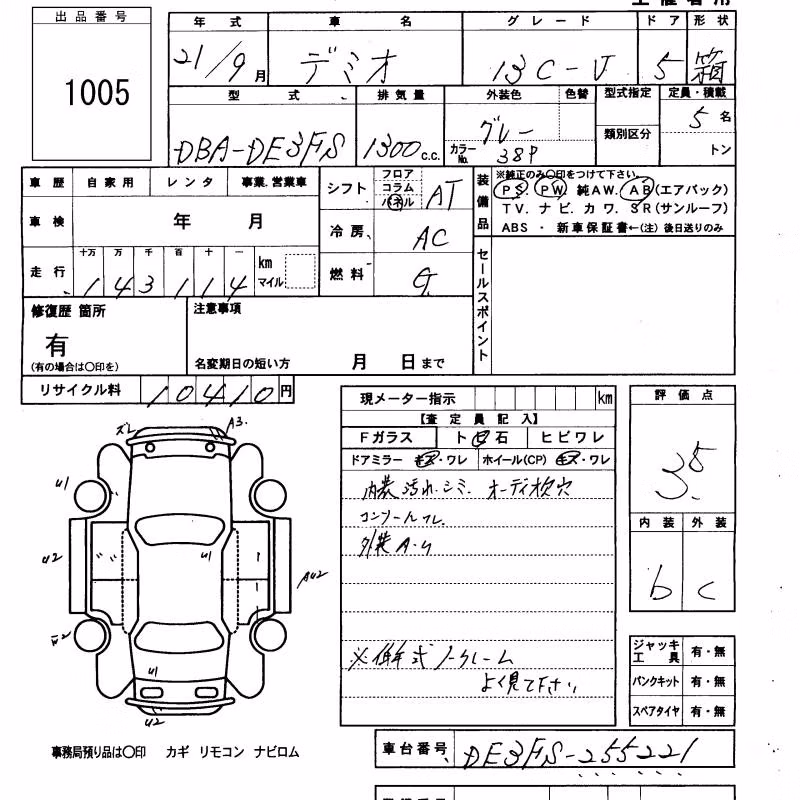 出品番号
1005
年式 車名 グレード ドア 形状
21/9月 デミオ 13C-V 5 箱
型式 排気量 外装色 色替 型式指定 定員・積載
DBA-DE3FS 1300c.c. グレー 類別区分 5名
カラーNo. 38P トン
車歴 自家用 レンタ 事業.営業車
シフト フロア コラム パネル AT
装備品 ※純正のみ○印をつけて下さい。
PS PW 純AW. AB(エアバック)
TV. ナビ. カワ. SR(サンルーフ)
ABS ・ 新車保証書←(注) 後日送りのみ
車検 年 月
冷房 AC
走行 十万 万 千 百 十 一
143114 km マイル
燃料 G
セールスポイント
修復歴 箇所
有
(有の場合は○印を)
注意事項
名変期日の短い方 月 日まで
リサイクル料 10410円
現メーター指示 km
【査定員記入】
Fガラス ト ビ 石 ヒビワレ
ドアミラー キズ・ワレ ホイール(CP) キズ・ワレ
内装 汚れ.シミ. オーディオ欠穴
コンソールワレ.
外装 A・U
※低年式 ノークレーム
よく見て下さい
評価点
3.5
内装 外装
b c
ズレ A3.
U1
U2
U1
AU2
U1
U2
ジャッキ工具 有・無
パンクキット 有・無
スペアタイヤ 有・無
事務局預り品は○印 カギ リモコン ナビロム
車台番号 DE3FS-255221